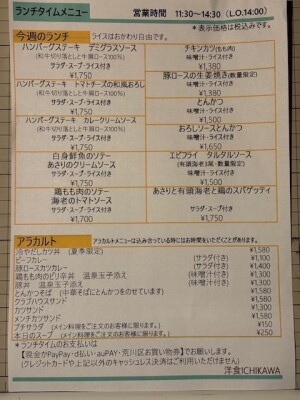 ランチタイムメニュー
営業時間 11:30～14:30 (L.O.14:00)
*表示価格は税込みです。
今週のランチ
ライスはおかわり自由です。
ハンバーグステーキ デミグラスソース
(和牛切り落としと牛肩ロース100%)
サラダ・スープ・ライス付き
¥1,750
ハンバーグステーキ トマトチーズの和風おろし
(和牛切り落としと牛肩ロース100%)
サラダ・スープ・ライス付き
¥1,750
ハンバーグステーキ カレークリームソース
(和牛切り落としと牛肩ロース100%)
サラダ・スープ・ライス付き
¥1,750
白身鮮魚のソテー
あさりのクリームソース
サラダ・スープ・ライス付き
¥1,750
鶏もも肉のソテー
海老のトマトソース
サラダ・スープ・ライス付き
¥1,700
チキンカツ(もも肉)
味噌汁・ライス付き
¥1,380
豚ロースの生姜焼き(数量限定)
味噌汁・ライス付き
¥1,380
とんかつ
味噌汁・ライス付き
¥1,500
おろしソースとんかつ
味噌汁・ライス付き
¥1,650
エビフライ タルタルソース
(有頭海老3尾・数量限定)
味噌汁・ライス付き
¥1,500
あさりと有頭海老と鶏のスパゲッティ
サラダ・スープ付き
¥1,750
アラカルト
アラカルトメニューは込み合っている時にはお時間をいただくことがあります。
冷やだしカツ丼 (夏季限定) ¥1,580
ビーフカレー (サラダ付き) ¥1,100
豚ロースカツカレー (サラダ付き) ¥1,400
鶏もも肉のピリ辛丼 温泉玉子添え (味噌汁付き) ¥1,300
豚丼 温泉玉子添え (味噌汁付き) ¥1,300
とんかつそば (中華そばにとんかつをのせています) ¥1,580
クラブハウスサンド ¥1,580
カツサンド ¥1,300
メンチカツサンド ¥1,580
プチサラダ (メイン料理をご注文のお客様に限ります。) ¥150
本日のスープ (メイン料理をご注文のお客様に限ります。) ¥250
*ランチタイムのお支払いは
【現金かPayPay・d払い・auPAY・荒川区お買い物券】でお願いします。
(クレジットカードや上記以外のキャッシュレス決済はご利用いただけません)
洋食ICHIKAWA